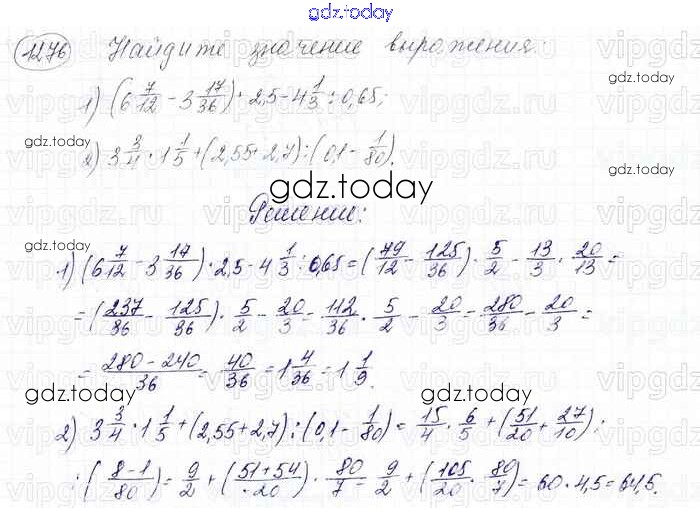 gdz.today
1276 Найдите значение выражения:
1) (6 7/12 - 3 17/36) · 2,5 - 4 1/3 : 0,65;
gdz.today
gdz.today
2) 3 3/4 · 1 1/5 + (2,55 + 2,7) : (0,1 - 1/80).
gdz.today
Решение:
gdz.today
1) (6 7/12 - 3 17/36) · 2,5 - 4 1/3 : 0,65 = (79/12 - 125/36) · 5/2 - 13/3 · 20/13 =
= (237/36 - 125/36) · 5/2 - 20/3 = 112/36 · 5/2 - 20/3 = 280/36 - 20/3 =
= 280 - 240/36 = 40/36 = 1 4/36 = 1 1/9.
gdz.today
gdz.today
2) 3 3/4 · 1 1/5 + (2,55 + 2,7) : (0,1 - 1/80) = 15/4 · 6/5 + (51/20 + 27/10) :
: (8 - 1/80) = 9/2 + (51 + 54/20) · 80/7 = 9/2 + (105/20 · 80/7) = 60 · 4,5 = 64,5.